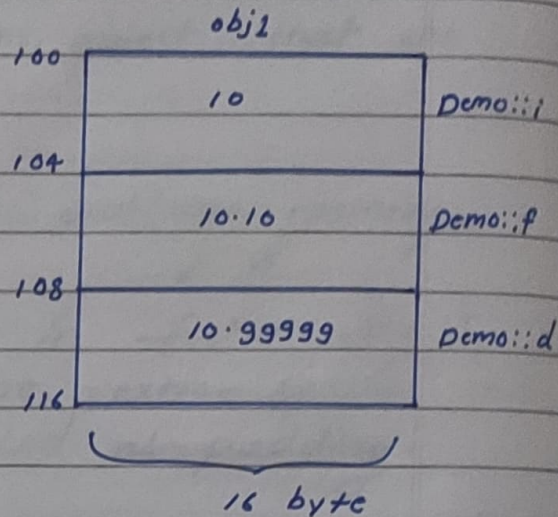 obj1
100
10 Demo::i
104
10.10 Demo::f
108
10.99999 Demo::d
116
16 byte